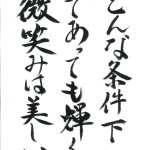 こんな条件下
であっても輝く
微笑みは美しい